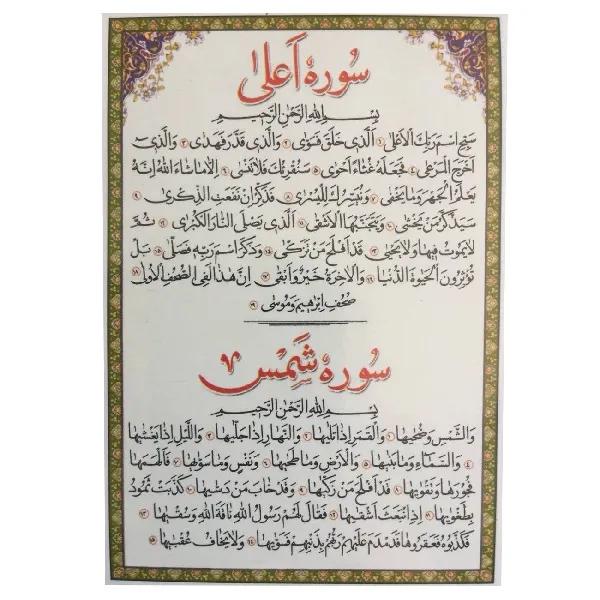 سوره اعلیٰ
بِسْمِ اللهِ الرَّحْمٰنِ الرَّحِيمِ
سَبِّحِ اسْمَ رَبِّكَ الْأَعْلَى ۱ الَّذِي خَلَقَ فَسَوّٰى ۲ وَالَّذِي قَدَّرَ فَهَدٰى ۳ وَالَّذِي
أَخْرَجَ الْمَرْعٰى ۴ فَجَعَلَهُ غُثَاءً أَحْوٰى ۵ سَنُقْرِئُكَ فَلَا تَنْسٰى ۶ إِلَّا مَا شَاءَ اللهُ إِنَّهُ
يَعْلَمُ الْجَهْرَ وَمَا يَخْفٰى ۷ وَنُيَسِّرُكَ لِلْيُسْرٰى ۸ فَذَكِّرْ إِنْ نَفَعَتِ الذِّكْرٰى ۹
سَيَذَّكَّرُ مَنْ يَخْشٰى ۱۰ وَيَتَجَنَّبُهَا الْأَشْقٰى ۱۱ الَّذِي يَصْلَى النَّارَ الْكُبْرٰى ۱۲ ثُمَّ
لَا يَمُوتُ فِيهَا وَلَا يَحْيٰى ۱۳ قَدْ أَفْلَحَ مَنْ تَزَكّٰى ۱۴ وَذَكَرَ اسْمَ رَبِّهِ فَصَلّٰى ۱۵ بَلْ
تُؤْثِرُونَ الْحَيٰوةَ الدُّنْيَا ۱۶ وَالْآخِرَةُ خَيْرٌ وَأَبْقٰى ۱۷ إِنَّ هٰذَا لَفِي الصُّحُفِ الْأُولٰى ۱۸
صُحُفِ إِبْرٰهِيمَ وَمُوسٰى ۱۹
سوره شَمس
بِسْمِ اللهِ الرَّحْمٰنِ الرَّحِيمِ
وَالشَّمْسِ وَضُحٰيهَا ۱ وَالْقَمَرِ إِذَا تَلٰيهَا ۲ وَالنَّهَارِ إِذَا جَلّٰيهَا ۳ وَاللَّيْلِ إِذَا يَغْشٰيهَا
۴ وَالسَّمَاءِ وَمَا بَنٰيهَا ۵ وَالْأَرْضِ وَمَا طَحٰيهَا ۶ وَنَفْسٍ وَمَا سَوّٰيهَا ۷ فَأَلْهَمَهَا
فُجُورَهَا وَتَقْوٰيهَا ۸ قَدْ أَفْلَحَ مَنْ زَكّٰيهَا ۹ وَقَدْ خَابَ مَنْ دَسّٰيهَا ۱۰ كَذَّبَتْ ثَمُودُ
بِطَغْوٰيهَا ۱۱ إِذِ انْبَعَثَ أَشْقٰيهَا ۱۲ فَقَالَ لَهُمْ رَسُولُ اللهِ نَاقَةَ اللهِ وَسُقْيٰهَا ۱۳
فَكَذَّبُوهُ فَعَقَرُوهَا فَدَمْدَمَ عَلَيْهِمْ رَبُّهُمْ بِذَنْبِهِمْ فَسَوّٰيهَا ۱۴ وَلَا يَخَافُ عُقْبٰيهَا ۱۵